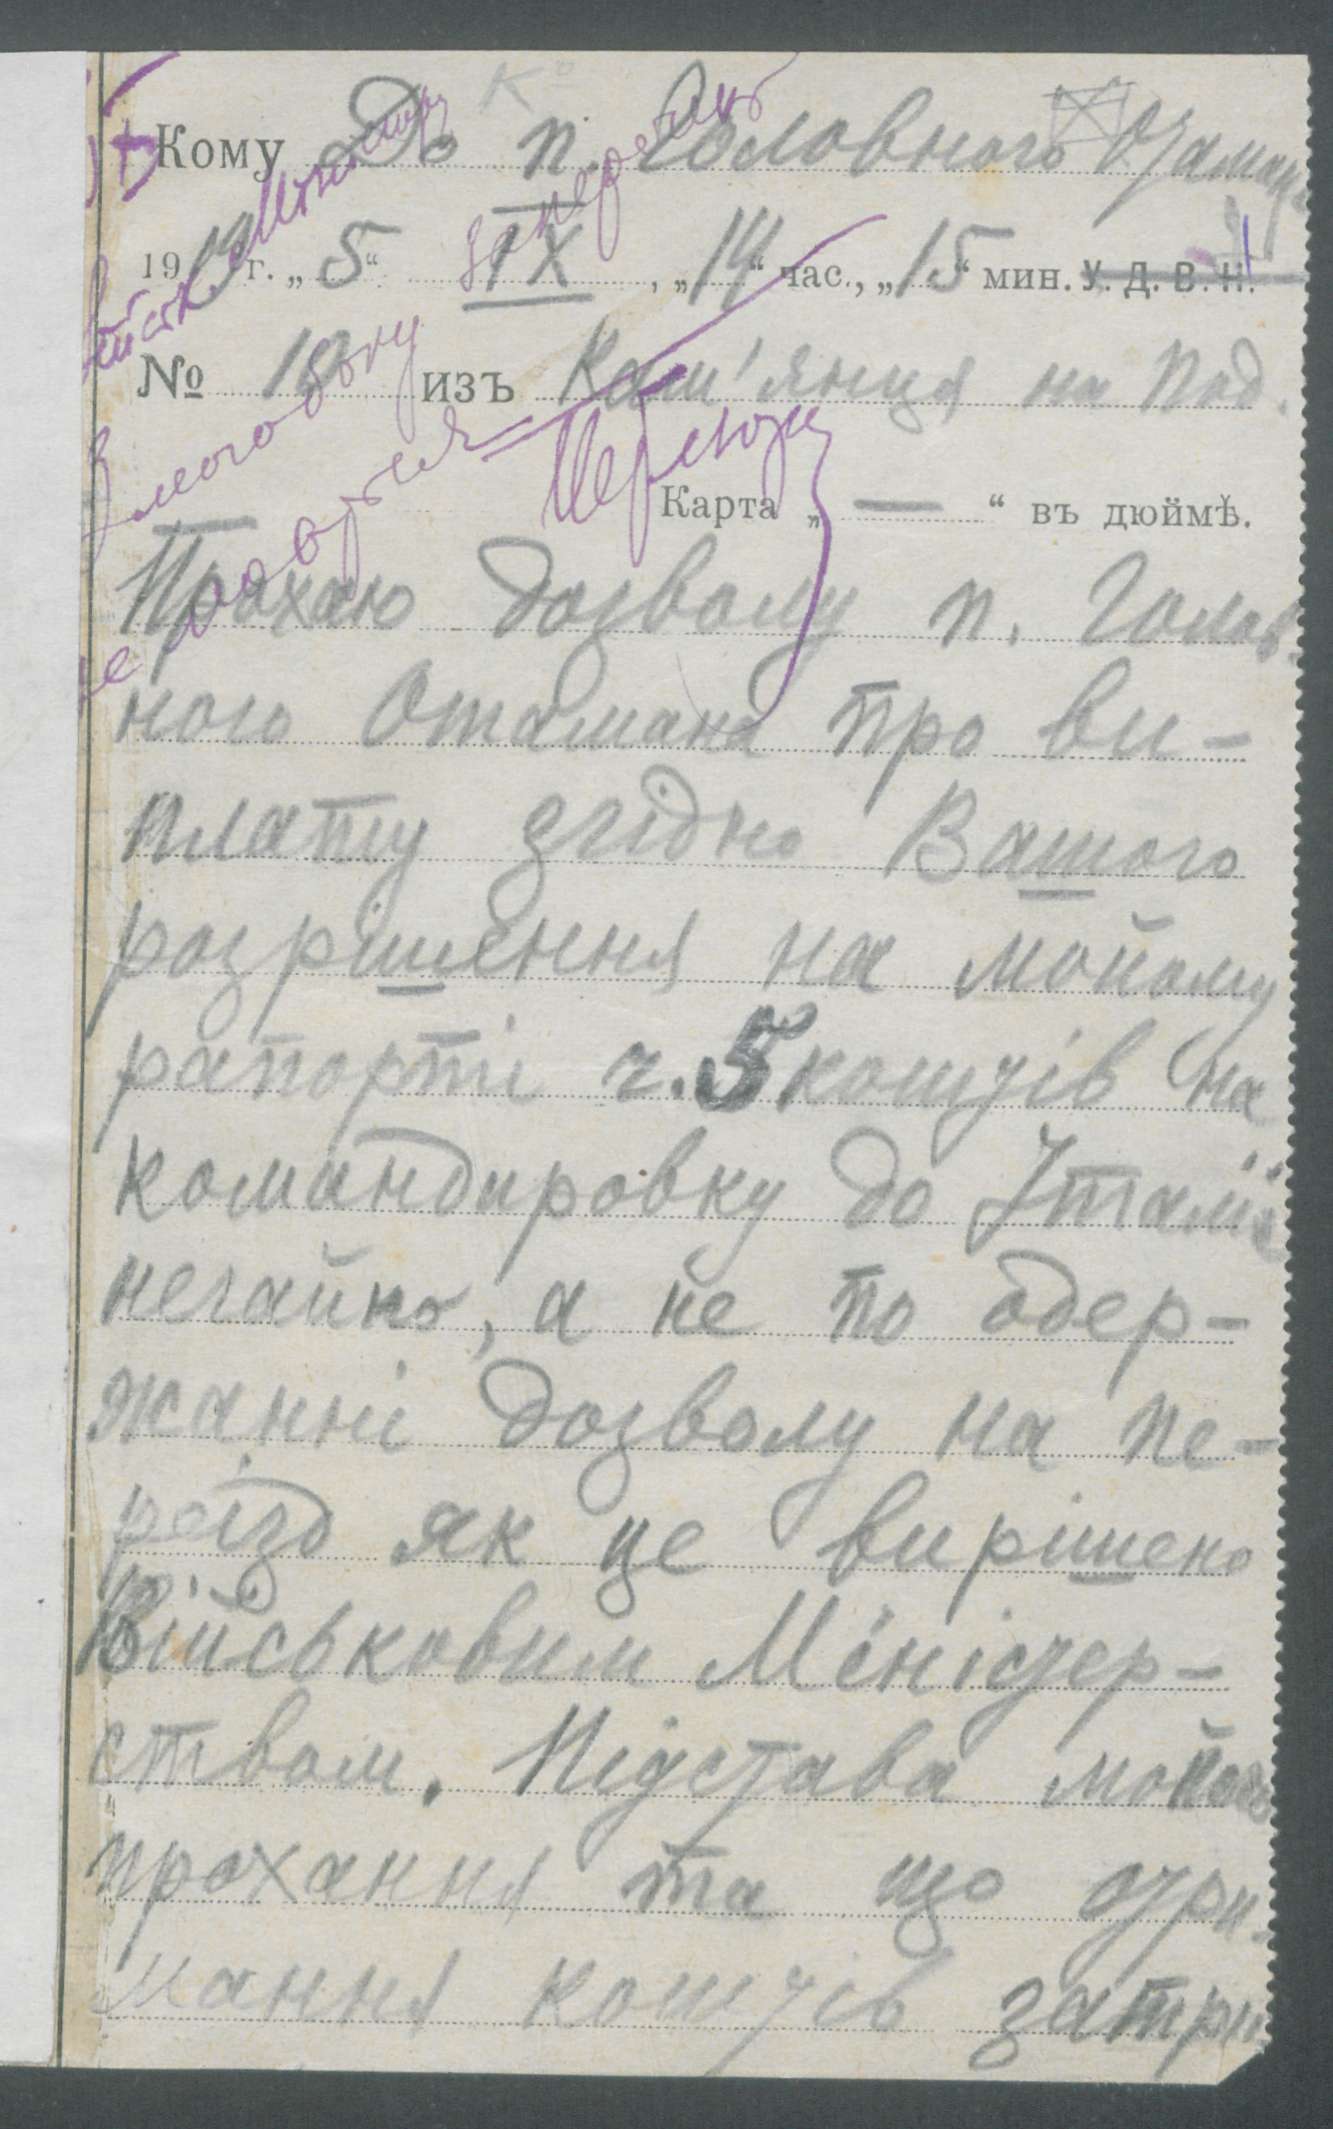 Кому До п. Головного Отамана
1919 г. „5“ IX, „14“ час., „15“ мин. У. Д. В. Н.
№ 10 изъ Кам'янця на Под.
Карта „—“ въ дюймѣ.
Прохаю дозволу п. Голов-
ного Отамана про ви-
плату згідно Вашого
розрішення на мойому
рапорті ч. 5 коштів на
командировку до Італії
негайно, а не по одер-
жанні дозволу на пе-
реїзд як це вирішено
Військовим Міністер-
ством. Підстава мойого
прохання та що отри-
мання коштів затри